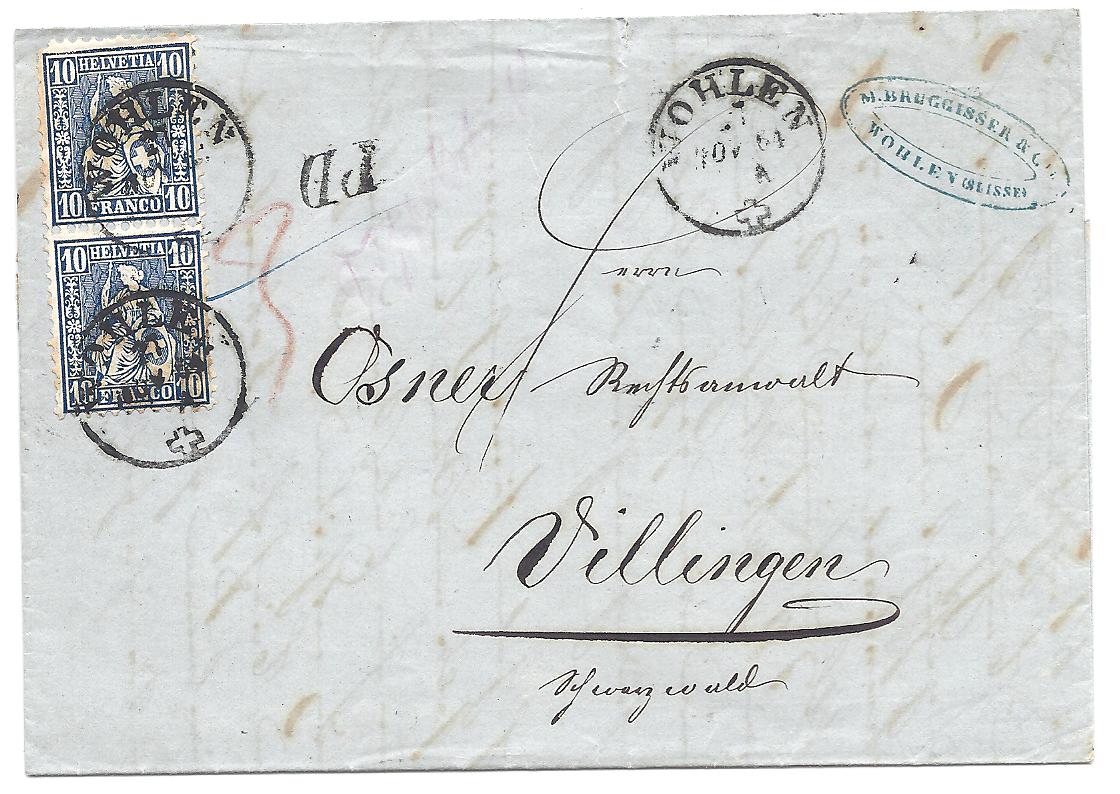 10 HELVETIA 10
10 FRANCO 10
10 HELVETIA 10
10 FRANCO 10
WOHLEN
PD
WOHLEN
NOV 64
A
M. BRUGGISSER & C
WOHLEN (SUISSE)
Herrn
Osner Rechtsanwalt
Villingen
Schwarzwald